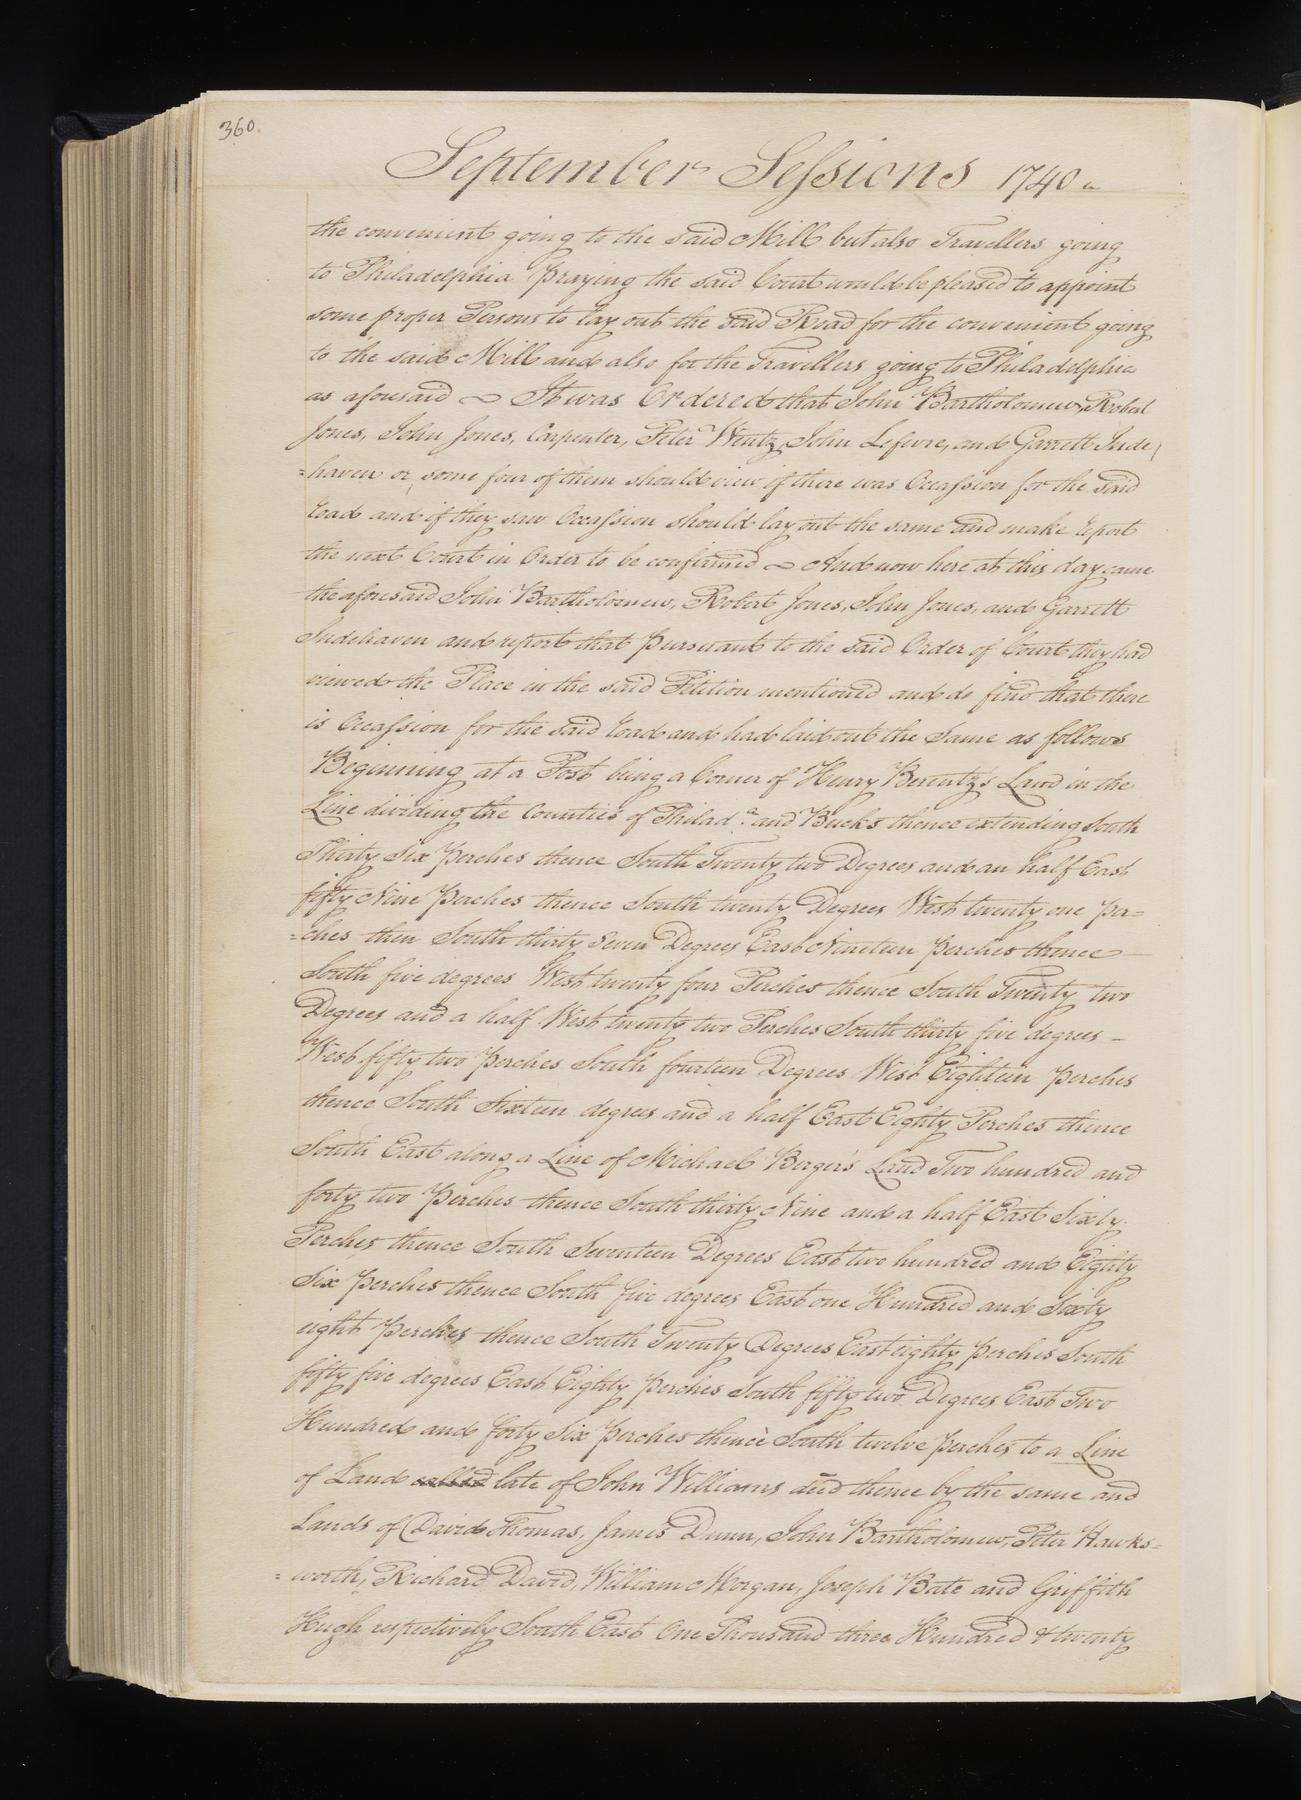 360.
September Sessions 1740
the convenient going to the said Mill but also Travellers going
to Philadelphia Praying the said Court would be pleased to appoint
some proper Persons to lay out the said Road for the convenient going
to the said Mill and also for the Travellers going to Philadelphia
as aforesaid ~ It was Ordered that John Bartholomew, Robert
Jones, John Jones, Carpenter, Peter Wentz, John Lefevre, and Garrett Inde
=haven or, some four of them should view if there was Occassion for the said
Road and if they saw Occassion should lay out the same and make report
the next Court in Order to be confirmed ~ And now here at this day came
the aforesaid John Bartholomew, Robert Jones, John Jones, and Garrett
Indehaven and report that pursuant to the said Order of Court they had
viewed the Place in the said Petition mentioned and do find that there
is Occassion for the said road and had laid out the Same as follows
Beginning at a Post being a Corner of Henry Berentz's Land in the
Line dividing the Counties of Philad.a and Bucks thence extending South
Thirty Six Perches thence South Twenty two Degrees and an half East
fifty Nine Perches thence South twenty Degrees West twenty one per=
=ches then South thirty Seven Degrees East Nineteen perches thence —
South five degrees West twenty four Perches thence South Twenty two
Degrees and a half West twenty two Perches South thirty five degrees —
West fifty two perches South fourteen Degrees West Eighteen perches
thence South Sixteen degrees and a half East Eighty Perches thence
South East along a Line of Michael Berger's Land Two hundred and
forty two perches thence South thirty Nine and a half East Sixty.
Perches thence South Seventeen Degrees East two hundred and Eighty
Six perches thence South five degrees East one Hundred and Sixty
eight Perches thence South Twenty Degrees East eighty perches South
fifty five degrees East Eighty perches South fifty two Degrees East Two
Hundred and forty Six perches thence South twelve perches to a Line
of Land called late of John Williams decd thence by the same and
Lands of David Thomas, James Dunn, John Bartholomew, Peter Hawks=
=worth, Richard David, William Morgan, Joseph Bate and Griffith
Hugh respectively South East One Thousand three Hundred & twenty